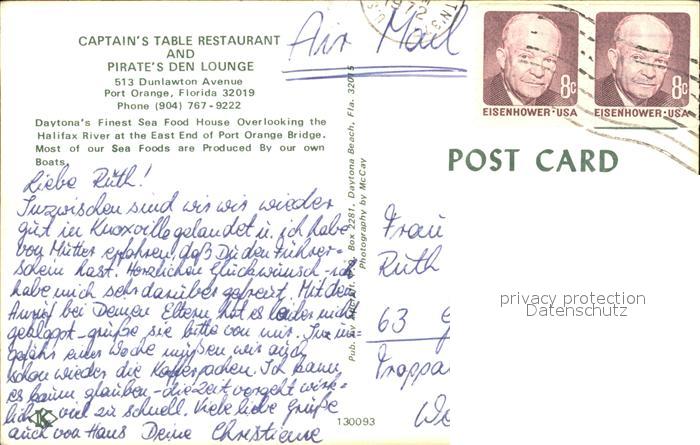 CAPTAIN'S TABLE RESTAURANT
AND
PIRATE'S DEN LOUNGE
513 Dunlawton Avenue
Port Orange, Florida 32019
Phone (904) 767-9222
Daytona's Finest Sea Food House Overlooking the
Halifax River at the East End of Port Orange Bridge.
Most of our Sea Foods are Produced By our own
Boats.
Air Mail
1972
8c
EISENHOWER·USA
8c
EISENHOWER·USA
POST CARD
Liebe Ruth!
Inzwischen sind wir wir wieder
gut in Knoxville gelandet u. ich habe
von Mutter erfahren, daß Du den Führer-
schein hast. Herzlichen Glückwunsch - ich
habe mich sehr darüber gefreut. Mit dem
Anruf bei Deinen Eltern hat es leider nicht
geklappt - grüße sie bitte von mir. In un-
gefähr einer Woche müßen wir auch
schon wieder die Koffer packen. Ich kann
es kaum glauben - die Zeit vergeht wirk-
lich viel zu schnell. Viele liebe Grüße
auch von Hans Deine Christiane
Box 2281, Daytona Beach, Fla. 32015
Photography by McCay
130093
K
Frau
Ruth
63
Troppa
privacy protection
Datenschutz